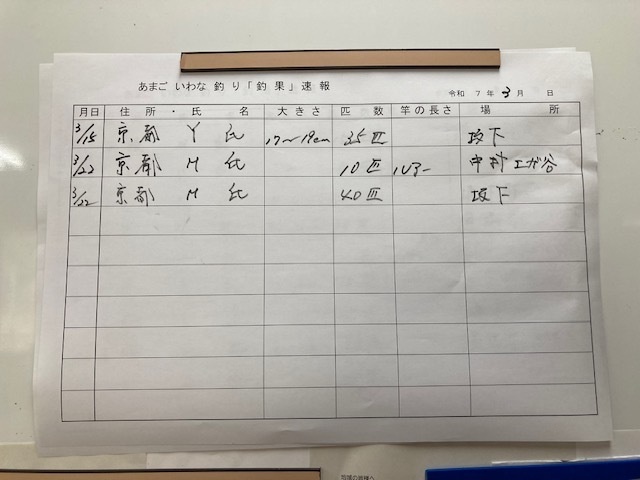 あまご いわな 釣り「釣果」速報
令和 7年 3月 日
月日 住所・氏名 大きさ 匹数 竿の長さ 場所
3/15 京都 Y氏 17〜19cm 35匹 坂下
3/22 京都 M氏 10匹 ルアー 中村 エガ谷
3/22 京都 M氏 40匹 坂下